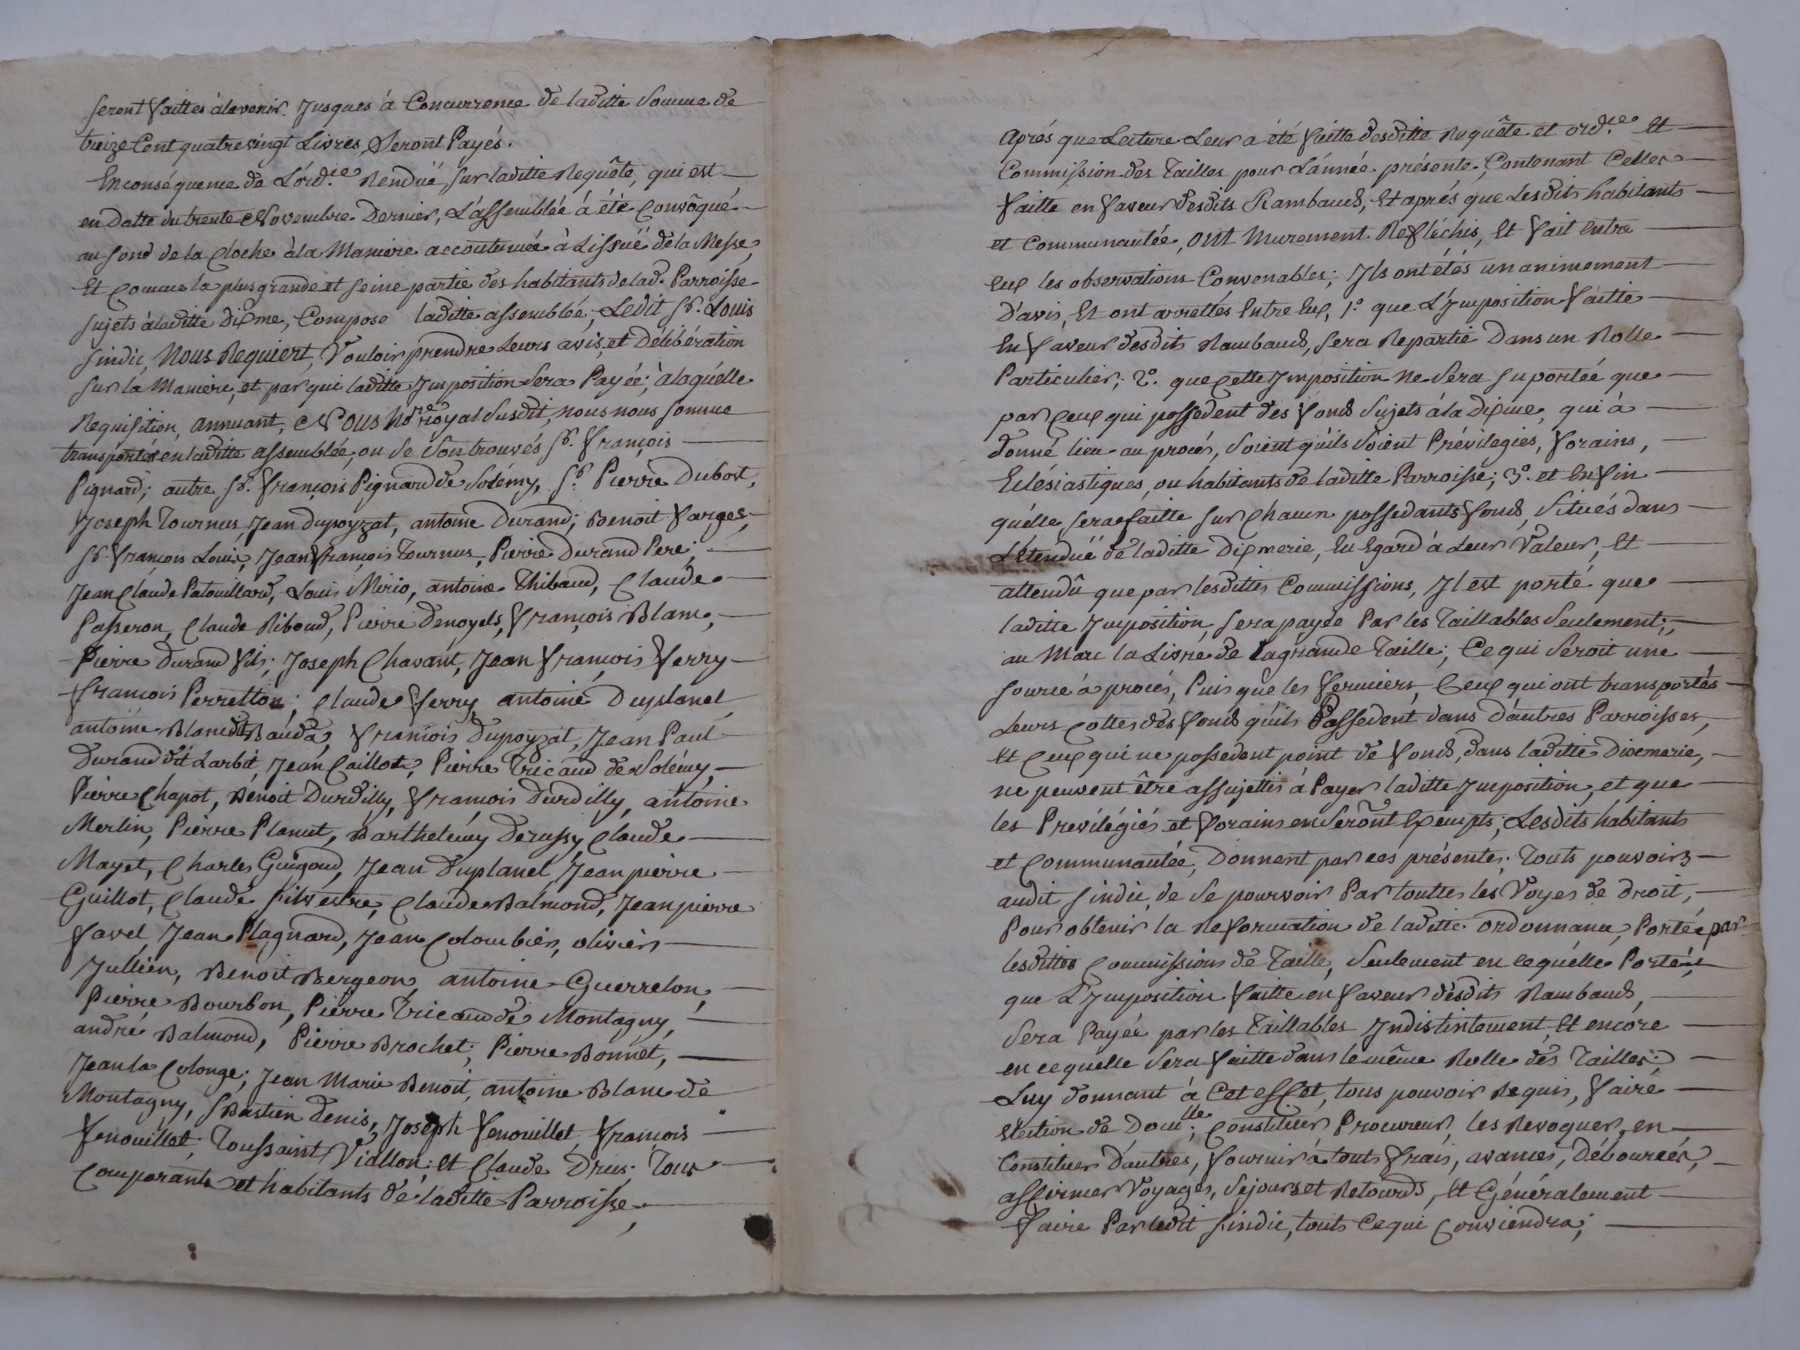 seront faittes àlavenir. Jusques à Concurrence de laditte Somme de
treize Cent quatrevingt Livres, Seront Payés.
En conséquence de L'ord.ce Rendüe, sur laditte Requête, qui est
en datte du trente Novembre dernier, L'assemblée à été Convôqué
au son de la Cloche à la Maniere accoutumée à L'issuë de la Messe,
Et Comme la plus grande et seine partie des habitants de lad. Parroisse
sujets à laditte dixme, Compose laditte assemblée, Ledit Sr. Louis
sindic, Nous Requiert, Vouloir prendre Leurs avis, et Délibération
sur la Maniere, et par qui laditte Imposition Sera Payée; àlaquélle
Requisition, annuant, Nous Nore royal Susdit, nous nous somme
transportés en laditte assemblée, ou se Sont trouvés Sr. François
Pignard; autre Sr. François Pignard de Solémy, Sr. Pierre Dubost,
Joseph Tournus, Jean Dupoyzat, antoine Durand; Benoit Farges,
Sr. François Louis, Jean François Tournus, Pierre Durand Pere;
Jean Claude Patouillard, Louis Mirio, antoine Thibaud, Claude
Passeron, Claude Riboud, Pierre Denoyels, François Blanc,
Pierre Durand fils; Joseph Chavant, Jean François Ferry
François Perretton; Claude Ferry antoine Duplanel
antoine Blanc dt Bauda, François Dupoyzat, Jean Paul
Durand dit Larbit, Jean Caillot, Pierre Tricaud de Solémy,
Pierre Chapot, Benoit Durdilly, François Durdilly, antoine
Merlin, Pierre Planut, Barthelémy Derussy Claude
Mayet, Charles Guigoud, Jean Duplanel, Jean pierre
Guillot, Claude Silvestre, Claude Balmond, Jean pierre
Favel, Jean Plagnard, Jean Colombier, olivier
Jullien, Benoit Bergeon, antoine Guerrelon,
Pierre Bourbon, Pierre Tricaud de Montagny,
andré Balmond, Pierre Brochet; Pierre Bonnet,
Jean la Colonge; Jean Marie Benoit, antoine Blanc de
Montagny, Sbastien Denis, Joseph Fenouillet François
Fenouillet; Toussaint Viallon; et Claude Drus; Tous
Comparants et habitants de laditte Parroisse,
Aprés que Lecture Leur a été faitte desditte Requête et ord.ce Et
Commission des Tailles pour L'année présente, Contenant Celles
faitte en faveur desdits Rambaud, Et aprés que Lesdits habitants
et Communautée, ont Murement Refléchis, Et fait Entre
Eux les observations Convenables; Ils ont étés unanimement
D'avis, Et ont arrettés Entre Eux, 1o. que L'Imposition faitte
En faveur desdits Rambaud, sera Repartie Dans un Rolle
Particulier; 2o. que Cette Imposition ne Sera suportée que
par Ceux qui possedent des fonds Sujets à la Dixme, qui à
donné lieu au procés, Soient qu'ils Soient Prévilegiés, forains,
Eclésiastiques, ou habitants de laditte Parroisse; 3o. et Enfin
qu'elle sera faitte sur Chacun possedants fonds, Situés dans
L'étenduë de laditte Dixmerie, Eu Egard à Leur Valeur, Et
attendû que par lesdittes Commissions, Il est porté que
laditte Imposition, sera payée Par les Taillables Seulement;
au Marc la Livre de la grande Taille; Ce qui Seroit une
source à procés, Puis que les fermiers, Ceux qui ont transportés
Leurs Cottes des fonds qu'ils Possedent dans d'autres Parroisses,
Et Ceux qui ne possedent point de fonds, dans laditte Dixmerie,
ne peuvent être assujettis à Payer laditte Imposition, et que
les Prévilégiés et forains en Seront Exempts; Lesdits habitants
et Communautée, Donnent par ces présentes; Touts pouvoirs
audit sindic, de Se pourvoir Par touttes les Voyes de Droit,
Pour obtenir la Reformation de laditte ordonnance, Portée par
lesdittes Commissions de Taille, Seulement en cequélle Porté,
que L'Imposition faitte en faveur desdits Rambaud,
Sera Payée par les Taillables Indistintement, Et encore
en cequelle Sera faitte dans le même Rolle des Tailles;
Luy donnant à Cet effet, tous pouvoir Requis, faire
Election de Domlle; Constituer Procureur les Revoquer, en
Constituer D'autres, fournir à touts frais, avances, Débourcés,
affirmer Voyages, séjours et Retourds, Et Généralement
faire Par ledit sindic, touts Cequi Conviendra;